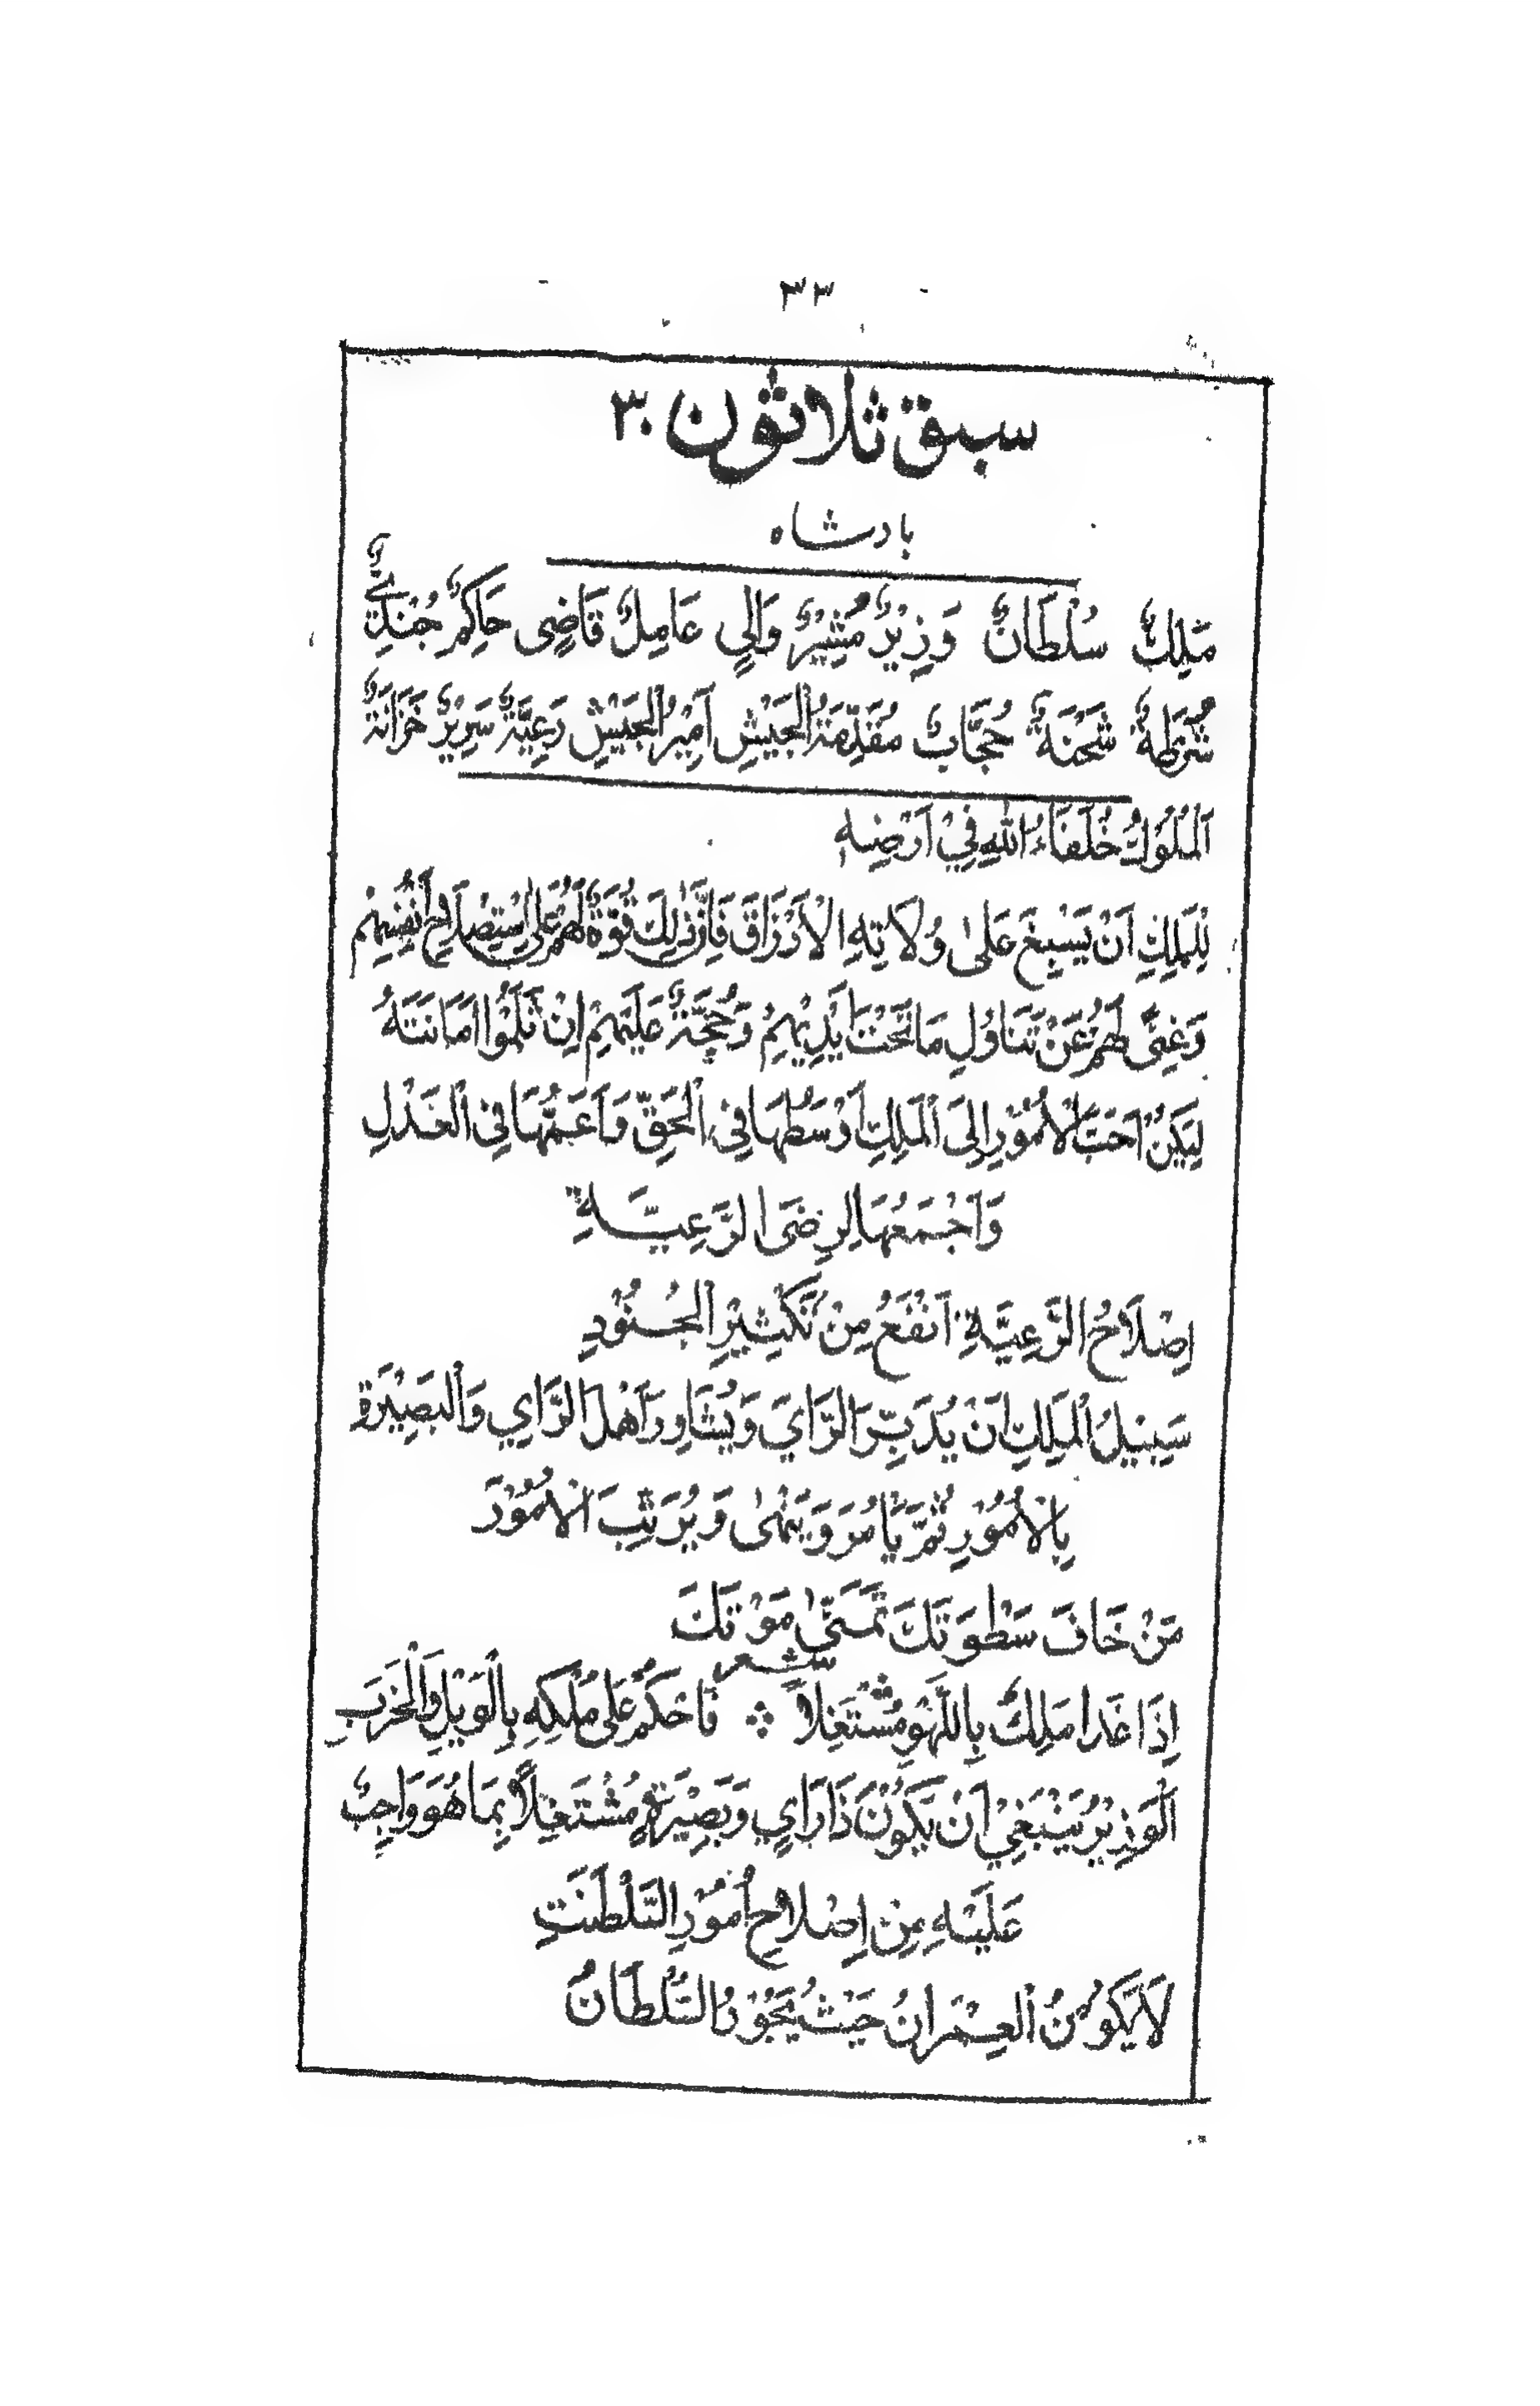 ٣٣
سبق ثلاثون ٣٠
بادشاه
مَلِكٌ سُلْطَانٌ وَزِيْرٌ مُشِيْرٌ وَالِي عَامِلٌ قَاضِي حَاكِمٌ جُنْدِيٌّ
شُرْطَةٌ شَحْنَةٌ حُجَّابٌ مُقَدِّمَةُ الْجَيْشِ اَمِيْرُ الْجَيْشِ رَعِيَّةٌ سَرِيْرٌ خَزَانَةٌ
اَلْمُلُوْكُ خُلَفَاءُ اللهِ فِيْ اَرْضِهٖ
لِلْمَلِكِ اَنْ يَسْبِغَ عَلٰى وُلَاتِهِ الْاَرْزَاقَ فَاِنَّ ذٰلِكَ قُوَّةٌ لَهُمْ عَلٰى اِسْتِصْلَاحِ اَنْفُسِهِمْ
وَغِنًى لَهُمْ عَنْ تَنَاوُلِ مَا تَحْتَ اَيْدِيْهِمْ وَحُجَّةٌ عَلَيْهِمْ اِنْ ثَلَمُوْا اَمَانَتَهُ
لِيَكُنْ اَحَبَّ الْاُمُوْرِ اِلَى الْمَلِكِ اَوْسَطُهَا فِي الْحَقِّ وَاَعَمُّهَا فِي الْعَدْلِ
وَاَجْمَعُهَا لِرِضَى الرَّعِيَّةِ
اِصْلَاحُ الرَّعِيَّةِ اَنْفَعُ مِنْ تَكْثِيْرِ الْجُنُوْدِ
سَبِيْلُ الْمَلِكِ اَنْ يُدَبِّرَ الرَّايَ وَيُشَاوِرَ اَهْلَ الرَّايِ وَالْبَصِيْرَةِ
بِالْاُمُوْرِ ثُمَّ يَاْمُرَ وَيَنْهٰى وَيُرَتِّبَ الْاُمُوْرَ
مَنْ خَافَ سَطْوَتَكَ تَمَنّٰى مَوْتَكَ
شعر
اِذَا غَدَا مَلِكٌ بِاللَّهْوِ مُشْتَغِلًا ∴ فَاحْكُمْ عَلٰى مُلْكِهٖ بِالْوَيْلِ وَالْخَرَبِ
اَلْوَزِيْرُ يَنْبَغِيْ اَنْ يَكُوْنَ ذَا رَايٍ وَبَصِيْرَةٍ مُشْتَغِلًا بِمَا هُوَ وَاجِبٌ
عَلَيْهِ مِنْ اِصْلَاحِ اُمُوْرِ السَّلْطَنَتِ
لَا يَكُوْنُ الْعِمْرَانُ حَيْثُ يَجُوْرُ السُّلْطَانُ